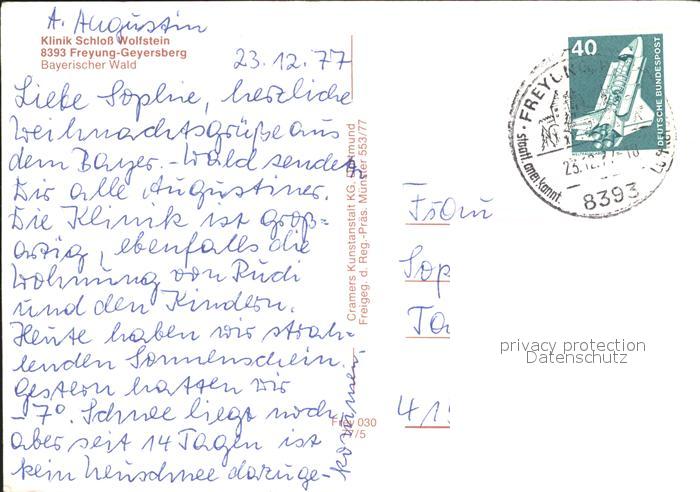 A. Augustin
Klinik Schloß Wolfstein
8393 Freyung-Geyersberg
Bayerischer Wald
23.12.77
Liebe Sophie, herzliche
Weihnachtsgrüße aus
dem Bayer.-Wald senden
Dir alle Augustiner.
Die Klinik ist groß=
artig, ebenfalls die
Wohnung von Rudi
und den Kindern.
Heute haben wir strah=
lenden Sonnenschein.
Gestern hatten wir
-7°. Schnee liegt noch
aber seit 14 Tagen ist
kein Neuschnee dazuge-
kommen
Cramers Kunstanstalt KG, Dortmund
Freigeg. d. Reg.-Präs. Münster 553/77
030
7/5
40
DEUTSCHE BUNDESPOST
FREYUNG
23.12.77-18
8393
staatl. anerkannt.
Frau
Sop
Ta
41
privacy protection
Datenschutz